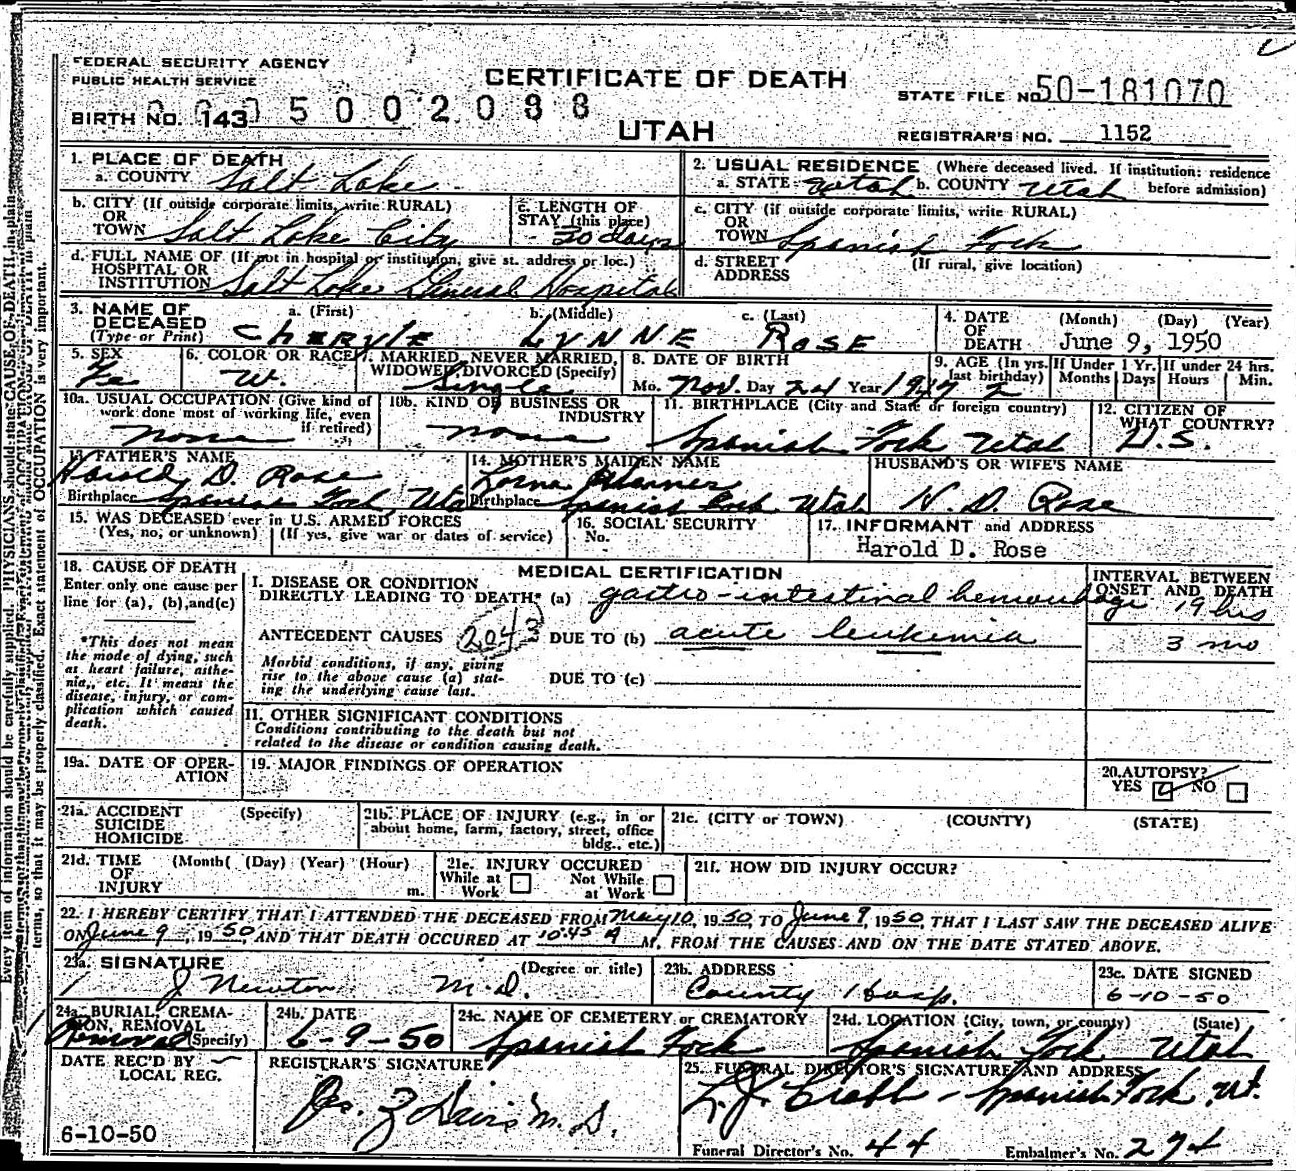 FEDERAL SECURITY AGENCY
PUBLIC HEALTH SERVICE
CERTIFICATE OF DEATH
UTAH
STATE FILE NO. 50-181070
BIRTH NO. 143
REGISTRAR'S NO. 1152
1. PLACE OF DEATH
a. COUNTY Salt Lake
2. USUAL RESIDENCE (Where deceased lived. If institution: residence before admission)
a. STATE Utah b. COUNTY Utah
b. CITY (If outside corporate limits, write RURAL) OR TOWN Salt Lake City
c. LENGTH OF STAY (this place) 30 days
c. CITY (if outside corporate limits, write RURAL) OR TOWN Spanish Fork
d. FULL NAME OF (If not in hospital or institution, give st. address or loc.) HOSPITAL OR INSTITUTION Salt Lake General Hospital
d. STREET ADDRESS (If rural, give location)
3. NAME OF DECEASED (Type or Print)
a. (First) b. (Middle) c. (Last)
CHERYLE LYNNE ROSE
4. DATE OF DEATH (Month) (Day) (Year)
June 9, 1950
5. SEX Fe
6. COLOR OR RACE W.
7. MARRIED, NEVER MARRIED, WIDOWED, DIVORCED (Specify) Single
8. DATE OF BIRTH
Mo. Nov. Day 24 Year 1947
9. AGE (In yrs. last birthday) 2
If Under 1 Yr. Months Days
If under 24 hrs. Hours Min.
10a. USUAL OCCUPATION (Give kind of work done most of working life, even if retired) none
10b. KIND OF BUSINESS OR INDUSTRY none
11. BIRTHPLACE (City and State or foreign country) Spanish Fork Utah
12. CITIZEN OF WHAT COUNTRY? U.S.
13. FATHER'S NAME Harold D. Rose
Birthplace Spanish Fork, Utah
14. MOTHER'S MAIDEN NAME Lorna
Birthplace Spanish Fork Utah
HUSBAND'S OR WIFE'S NAME
H. D. Rose
15. WAS DECEASED ever in U.S. ARMED FORCES
(Yes, no, or unknown) (If yes, give war or dates of service)
16. SOCIAL SECURITY No.
17. INFORMANT and ADDRESS
Harold D. Rose
18. CAUSE OF DEATH
Enter only one cause per line for (a), (b), and (c)
*This does not mean the mode of dying, such as heart failure, asthenia, etc. It means the disease, injury, or complication which caused death.
MEDICAL CERTIFICATION
INTERVAL BETWEEN ONSET AND DEATH
I. DISEASE OR CONDITION DIRECTLY LEADING TO DEATH* (a) gastro-intestinal hemorrhage 19 hrs
ANTECEDENT CAUSES 2043 DUE TO (b) acute leukemia 3 mo
Morbid conditions, if any, giving rise to the above cause (a) stating the underlying cause last.
DUE TO (c)
11. OTHER SIGNIFICANT CONDITIONS
Conditions contributing to the death but not related to the disease or condition causing death.
19a. DATE OF OPERATION
19. MAJOR FINDINGS OF OPERATION
20. AUTOPSY?
YES NO
21a. ACCIDENT SUICIDE HOMICIDE (Specify)
21b. PLACE OF INJURY (e.g., in or about home, farm, factory, street, office bldg., etc.)
21c. (CITY or TOWN) (COUNTY) (STATE)
21d. TIME OF INJURY (Month( (Day) (Year) (Hour) m.
21e. INJURY OCCURED
While at Work Not While at Work
21f. HOW DID INJURY OCCUR?
22. I HEREBY CERTIFY THAT I ATTENDED THE DECEASED FROM May 10, 1950, TO June 9, 1950 THAT I LAST SAW THE DECEASED ALIVE
ON June 9, 1950, AND THAT DEATH OCCURED AT 10:45 A M. FROM THE CAUSES AND ON THE DATE STATED ABOVE.
23a. SIGNATURE (Degree or title)
J Newton M.D.
23b. ADDRESS
County Hosp.
23c. DATE SIGNED
6-10-50
24a. BURIAL, CREMATION, REMOVAL (Specify) Removal
24b. DATE
6-9-50
24c. NAME OF CEMETERY or CREMATORY
Spanish Fork
24d. LOCATION (City, town, or county) (State)
Spanish Fork Utah
DATE REC'D BY LOCAL REG.
6-10-50
REGISTRAR'S SIGNATURE
25. FUNERAL DIRECTOR'S SIGNATURE AND ADDRESS
Spanish Fork, Ut.
Funeral Director's No. 44 Embalmer's No. 274